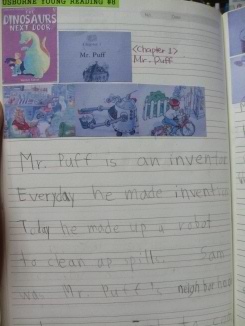 USBORNE YOUNG READING #8
THE
DINOSAURS
NEXT DOOR
Chapter 1
Mr. Puff
<Chapter 1>
Mr. Puff
Mr. Puff is an
Everyday he made
Today he made up a robot
to clean up spills. Sam
was Mr. Puff's neighbor